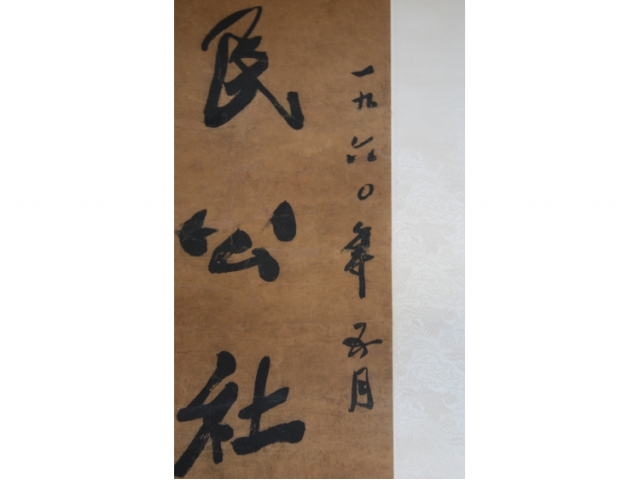 一九六〇年五月
民公社